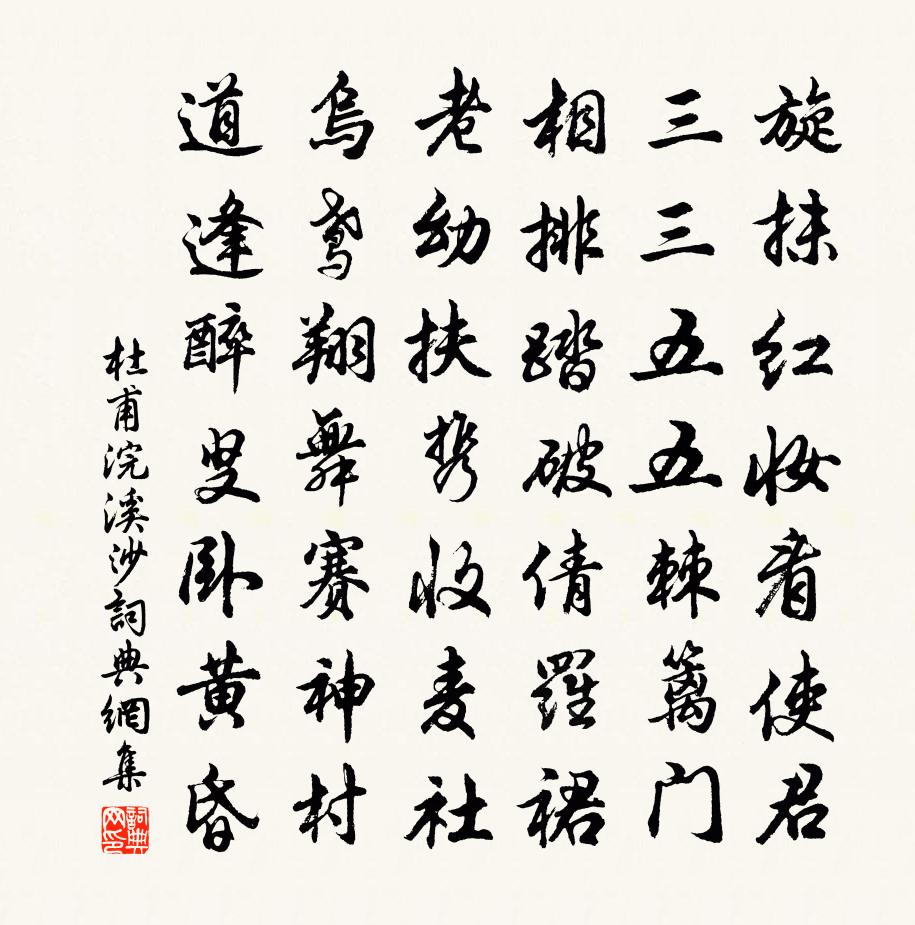 旋抹红妆看使君
三三五五棘篱门
相排踏破倩羅裙
老幼扶携收麦社
烏鳶翔舞賽神村
道逢醉叟卧黄昏
杜甫浣溪沙詞典網集
詞典网印